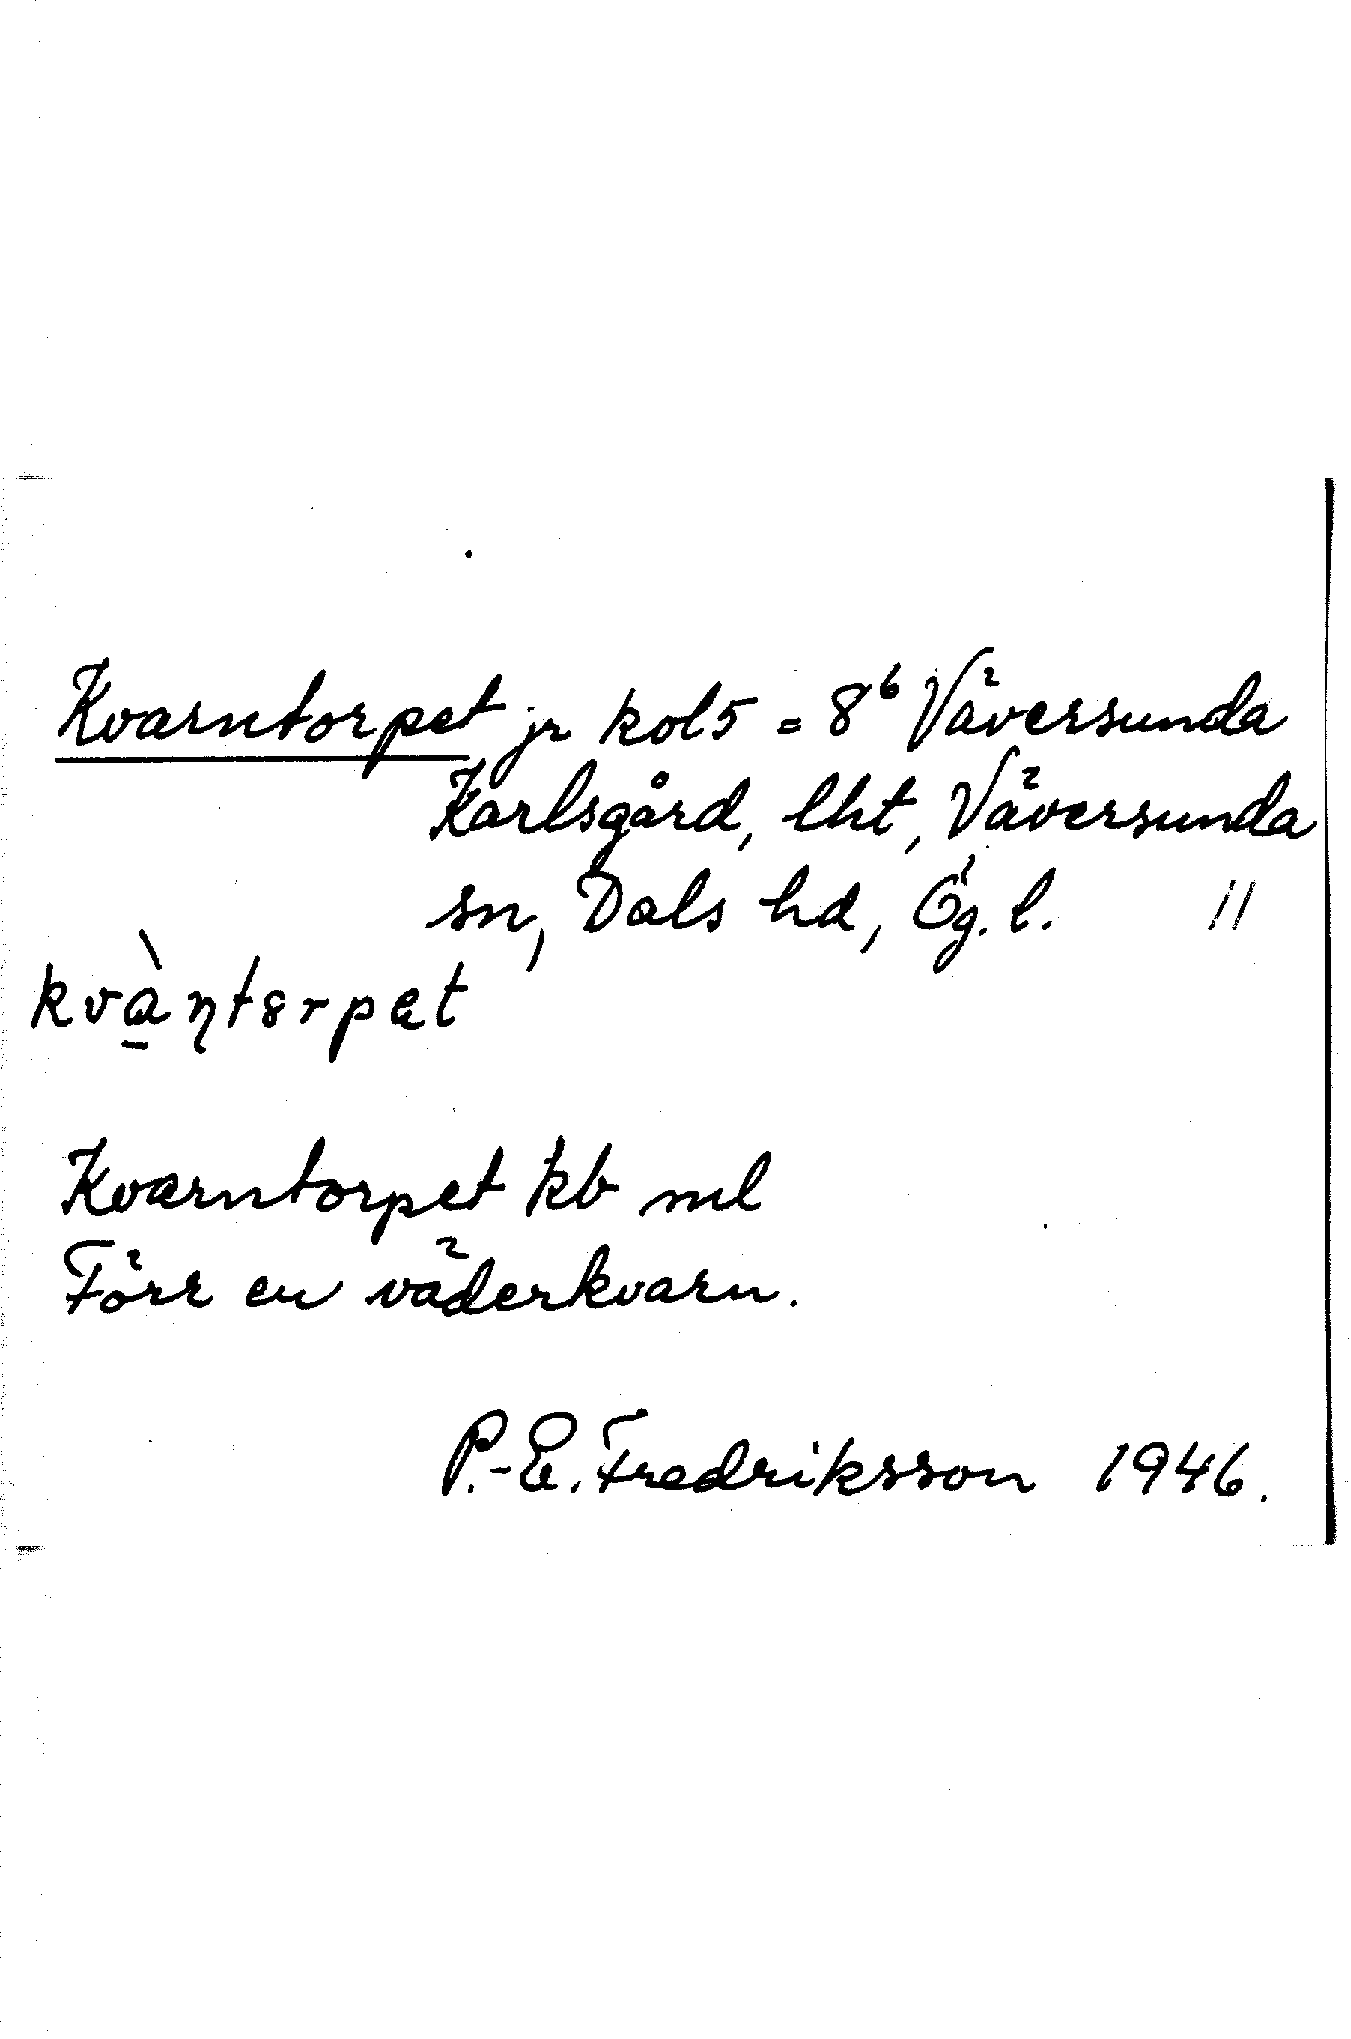 Kvarntorpet jr kol 5 = 8⁶ Väversunda
Karlsgård, lht, Väversunda
sn, Dals hd, Ög. l. 11
kvàṇt8rpet
Kvarntorpet kb ml
Förr en väderkvarn.
P.-E. Fredriksson 1946.